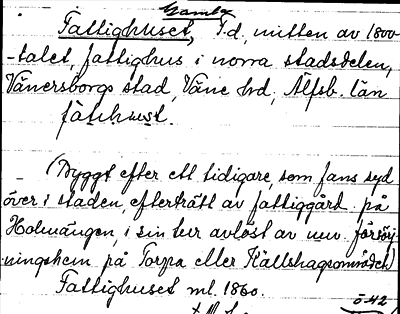 Gamla
Fattighuset, F.d., mitten av 1800-
-talet, fattighus i norra stadsdelen,
Vänersborgs stad, Väne hd, Älfsb. län
(Byggt efter ett tidigare, som fans syd
över i staden, efterträtt av fattiggård på
Holmängen, i sin tur avlöst av nuv. försörj-
ningshem på Torpa eller Källshagsområdet)
Fattighuset ml. 1860.
ö 42